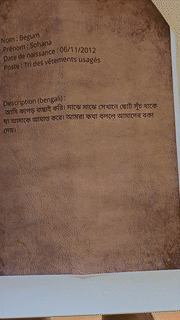 Nom : Begum
Prénom : Sohana
Date de naissance : 06/11/2012
Poste : Tri des vêtements usagés
Description (bengali) :
আমি কাপড় বাছাই করি। মাঝে মাঝে সেখানে ছোট সুঁচ থাকে
যা আমাকে আঘাত করে। আমরা কথা বললে আমাদের বকা
দেয়।